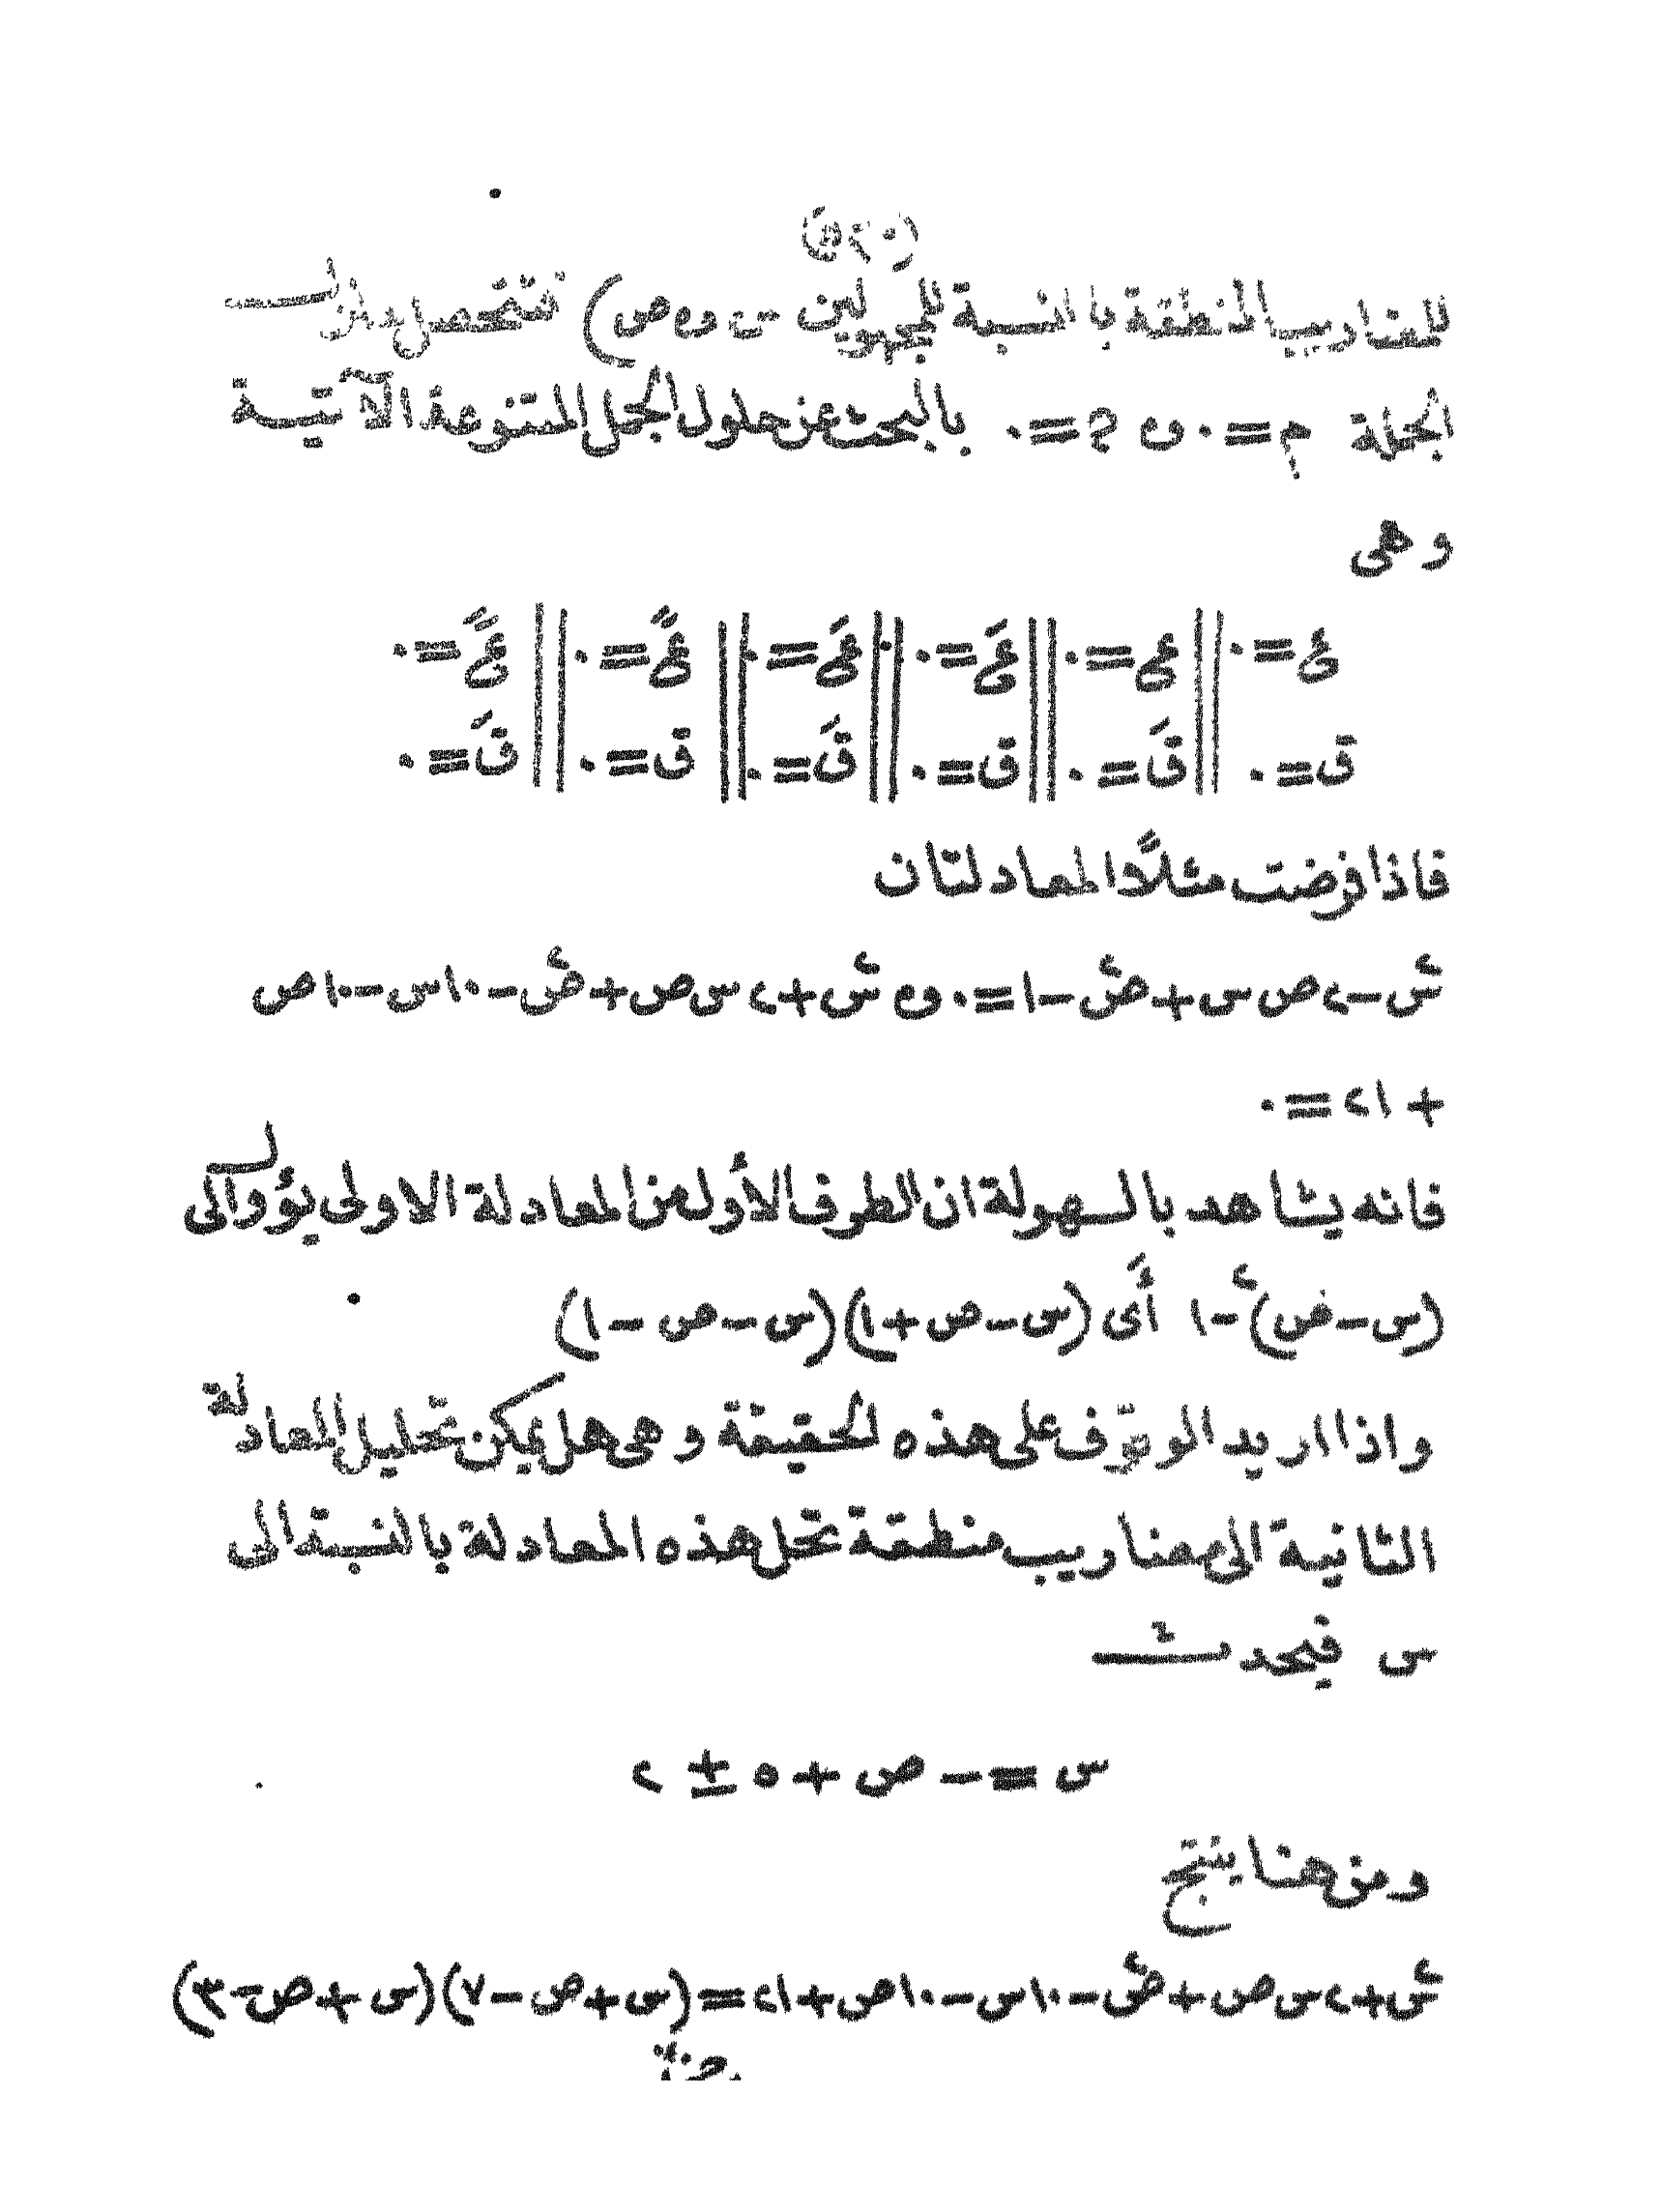 للمضاريب المنطقة بالنسبة للمجهولين س و ص) فتتحصل على
الجملة م = ٠ و ? = ٠ بالبحث عن حلول الجمل المتنوعة الآتية
وهى
ع = ٠ || عَ = ٠ || عَ = ٠ || عَ = ٠ || عً = ٠ || عً = ٠
ق = ٠ || قَ = ٠ || ق = ٠ || قَ = ٠ || ق = ٠ || قَ = ٠
فاذا فرضت مثلًا المعادلتان
س٢ - ٢ ص س + ص٢ - ١ = ٠ و س٢ + ٢ س ص + ص٢ - ١٠ س - ١٠ ص
+ ٢١ = ٠
فانه يشاهد بالسهولة ان الطرف الأول من المعادلة الاولى يؤول الى
(س - ص)٢ - ١ أى (س - ص + ١)(س - ص - ١)
واذا اريد الوقوف على هذه الحقيقة وهى هل يمكن تحليل المعادلة
الثانية الى مضاريب منطقة تحل هذه المعادلة بالنسبة الى
س فيحدث
س = - ص + ٥ ± ٢
ومن هنا ينتج
س٢ + ٢ س ص + ص٢ - ١٠ س - ١٠ ص + ٢١ = (س + ص - ٧)(س + ص - ٣)